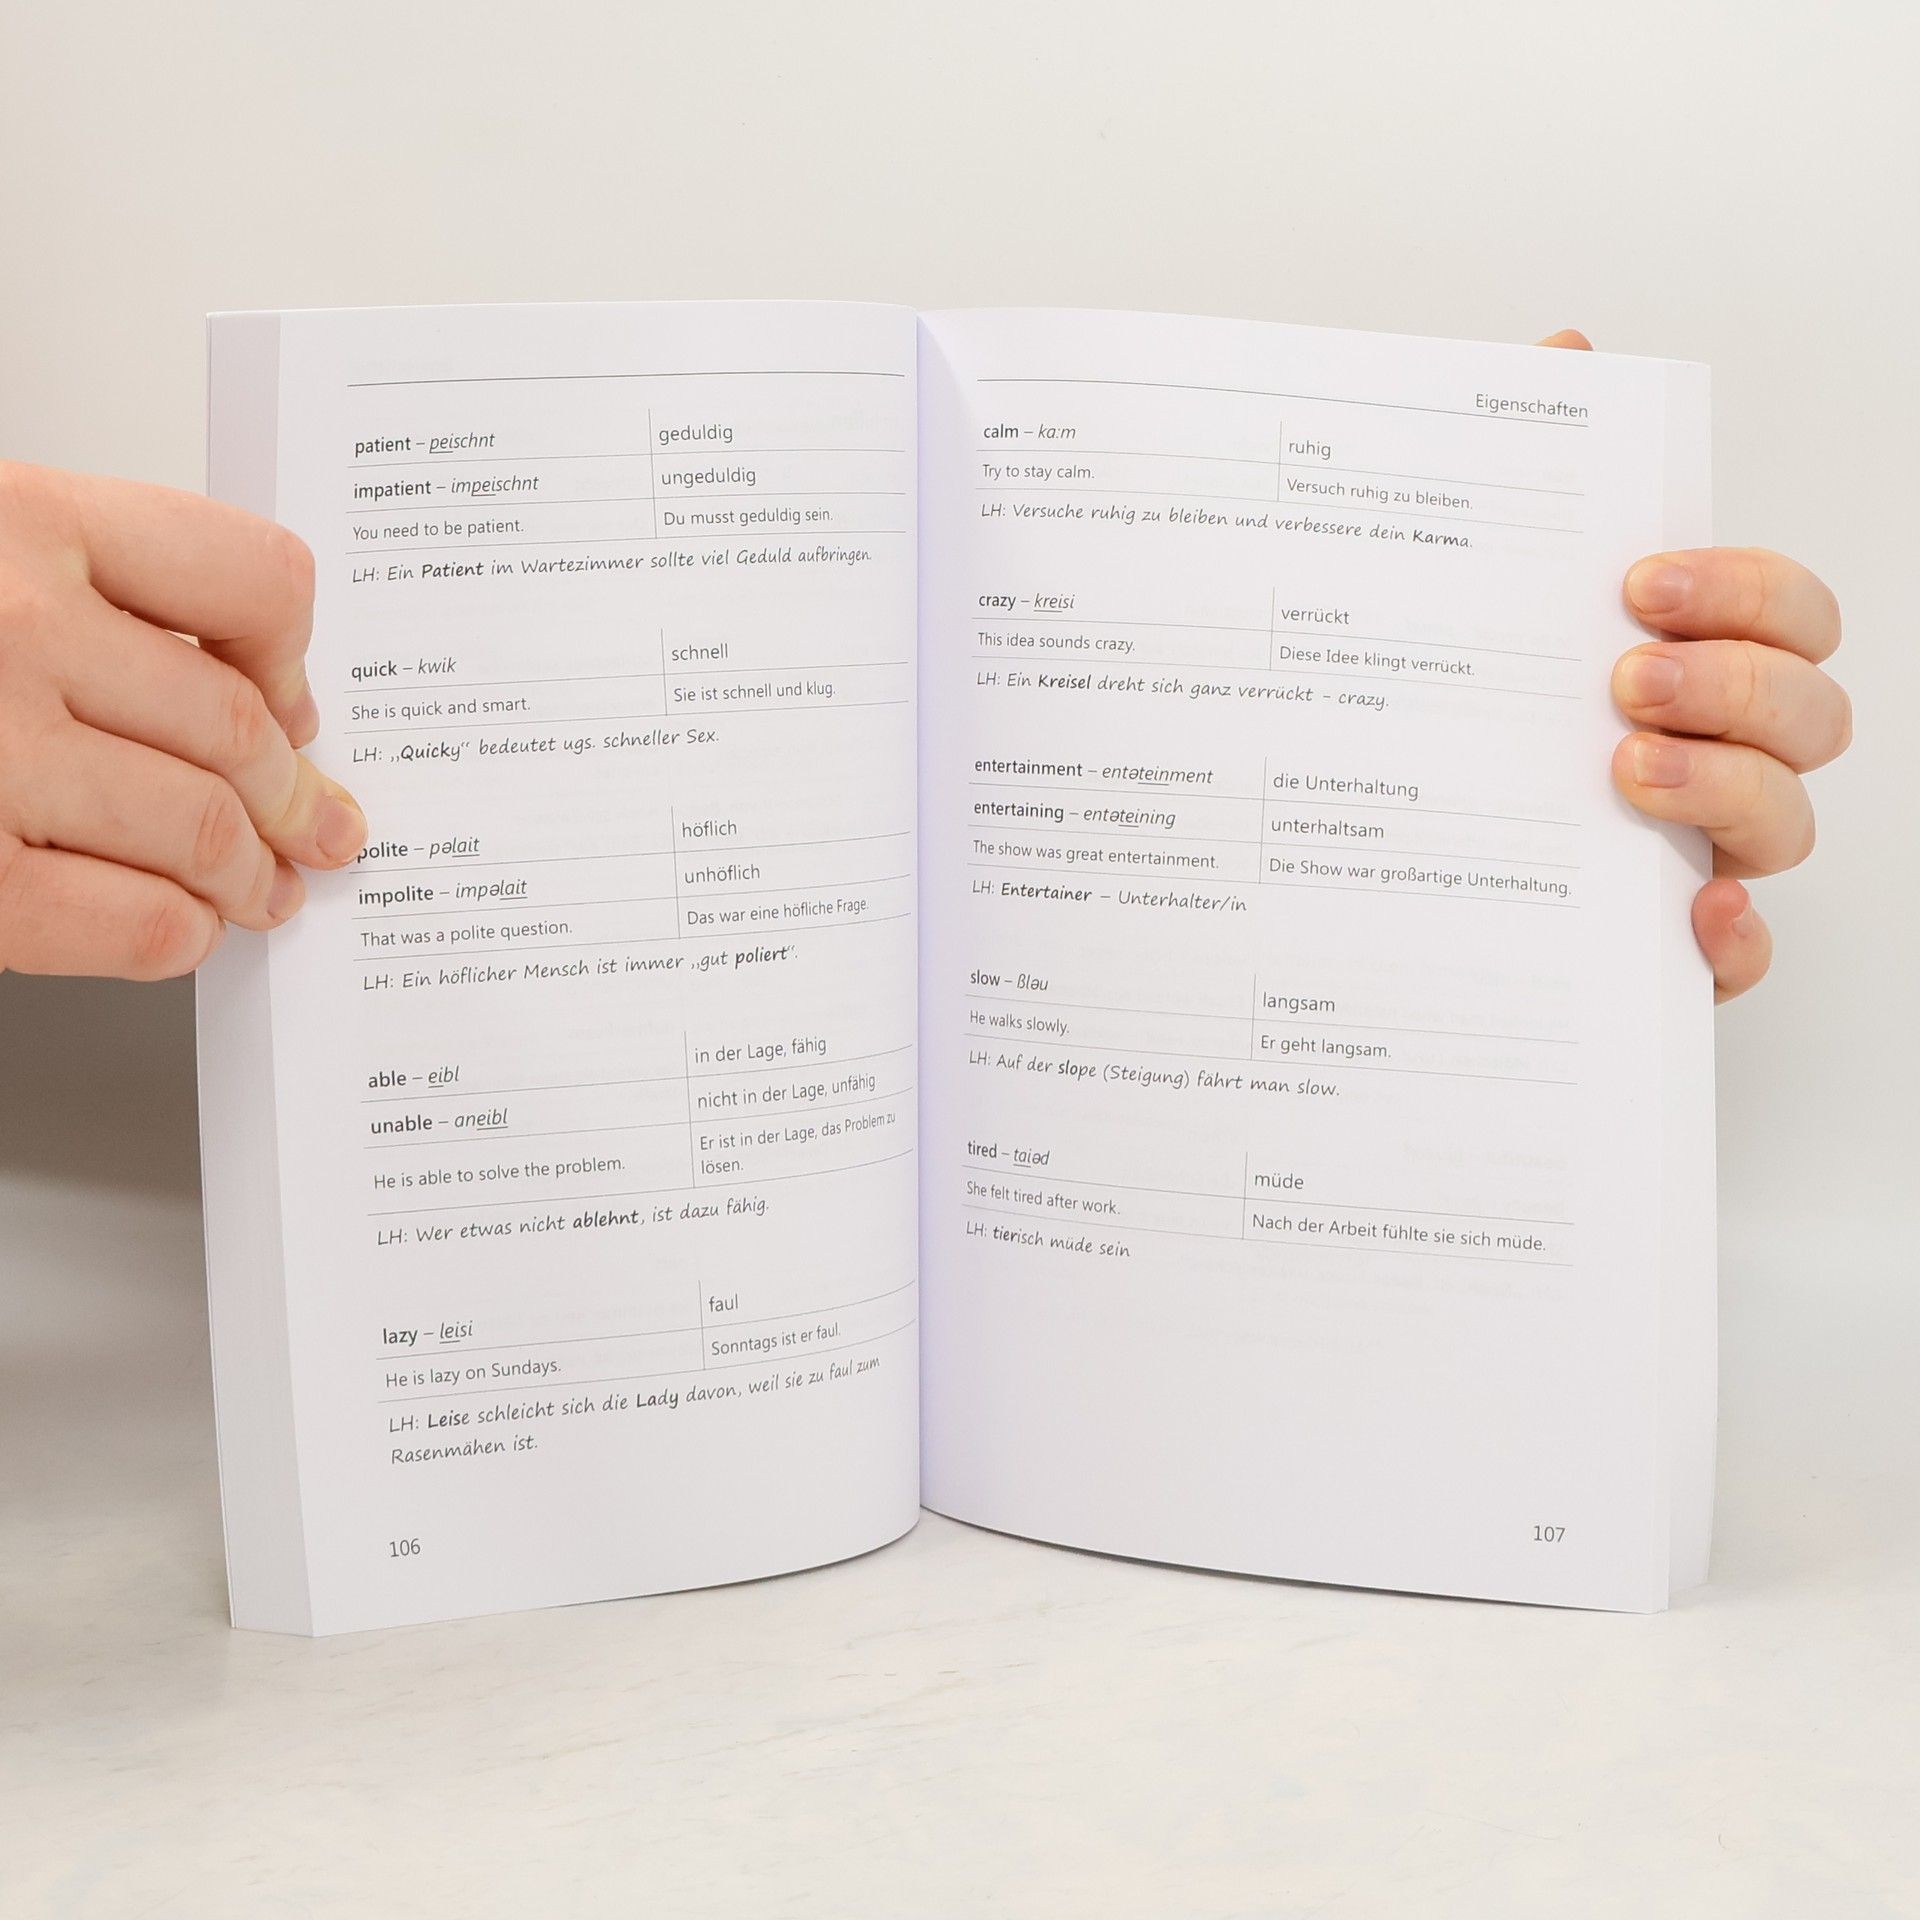 patient – peischnt geduldig
impatient – impeischnt ungeduldig
You need to be patient. Du musst geduldig sein.
LH: Ein Patient im Wartezimmer sollte viel Geduld aufbringen.
quick – kwik schnell
She is quick and smart. Sie ist schnell und klug.
LH: „Quicky“ bedeutet ugs. schneller Sex.
polite – pəlait höflich
impolite – impəlait unhöflich
That was a polite question. Das war eine höfliche Frage.
LH: Ein höflicher Mensch ist immer „gut poliert“.
able – eibl in der Lage, fähig
unable – aneibl nicht in der Lage, unfähig
He is able to solve the problem. Er ist in der Lage, das Problem zu
lösen.
LH: Wer etwas nicht ablehnt, ist dazu fähig.
lazy – leisi faul
He is lazy on Sundays. Sonntags ist er faul.
LH: Leise schleicht sich die Lady davon, weil sie zu faul zum
Rasenmähen ist.
106
Eigenschaften
calm – ka:m ruhig
Try to stay calm. Versuch ruhig zu bleiben.
LH: Versuche ruhig zu bleiben und verbessere dein Karma.
crazy – kreisi verrückt
This idea sounds crazy. Diese Idee klingt verrückt.
LH: Ein Kreisel dreht sich ganz verrückt – crazy.
entertainment – entəteinment die Unterhaltung
entertaining – entəteining unterhaltsam
The show was great entertainment. Die Show war großartige Unterhaltung.
LH: Entertainer – Unterhalter/in
slow – ßləu langsam
He walks slowly. Er geht langsam.
LH: Auf der slope (Steigung) fährt man slow.
tired – taiəd müde
She felt tired after work. Nach der Arbeit fühlte sie sich müde.
LH: tierisch müde sein
107